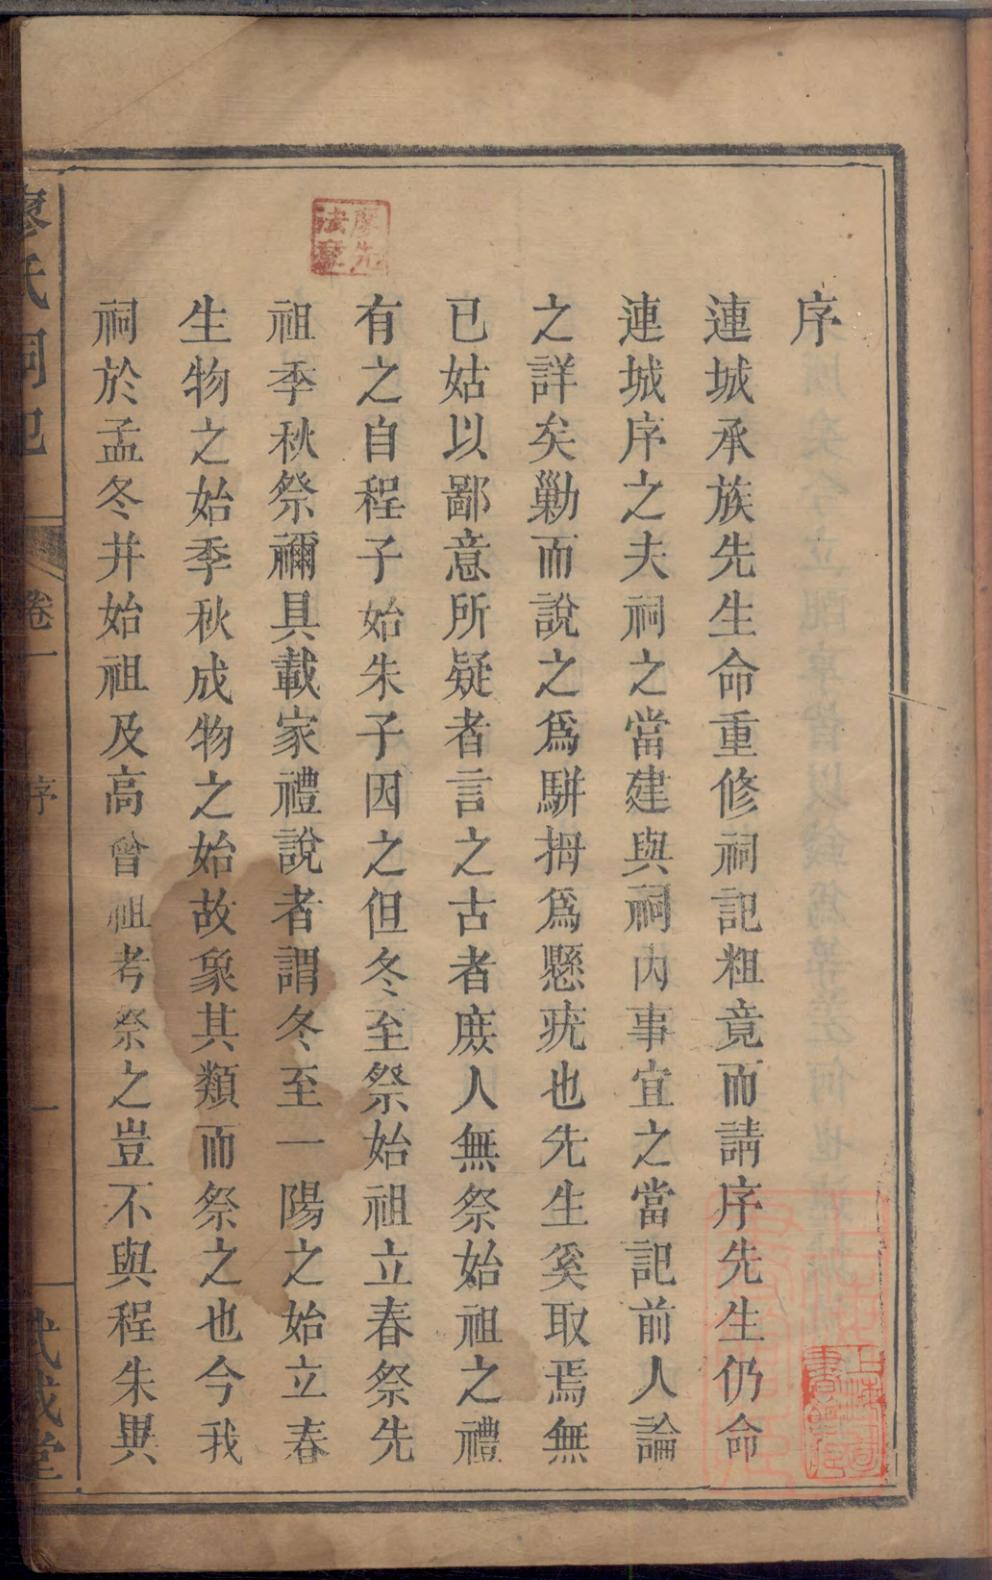 序
連城承族先生命重修祠記粗竟而請序先生仍命
連城序之夫祠之當建與祠內事宜之當記前人論
之詳矣勦而說之爲駢拇爲懸疣也先生奚取焉無
已姑以鄙意所疑者言之古者庶人無祭始祖之禮
有之自程子始朱子因之但冬至祭始祖立春祭先
祖季秋祭禰具載家禮說者謂冬至一陽之始立春
生物之始季秋成物之始故象其類而祭之也今我
祠於孟冬并始祖及高曾祖考祭之豈不與程朱異
廖氏祠記
卷一
序
一
武威堂